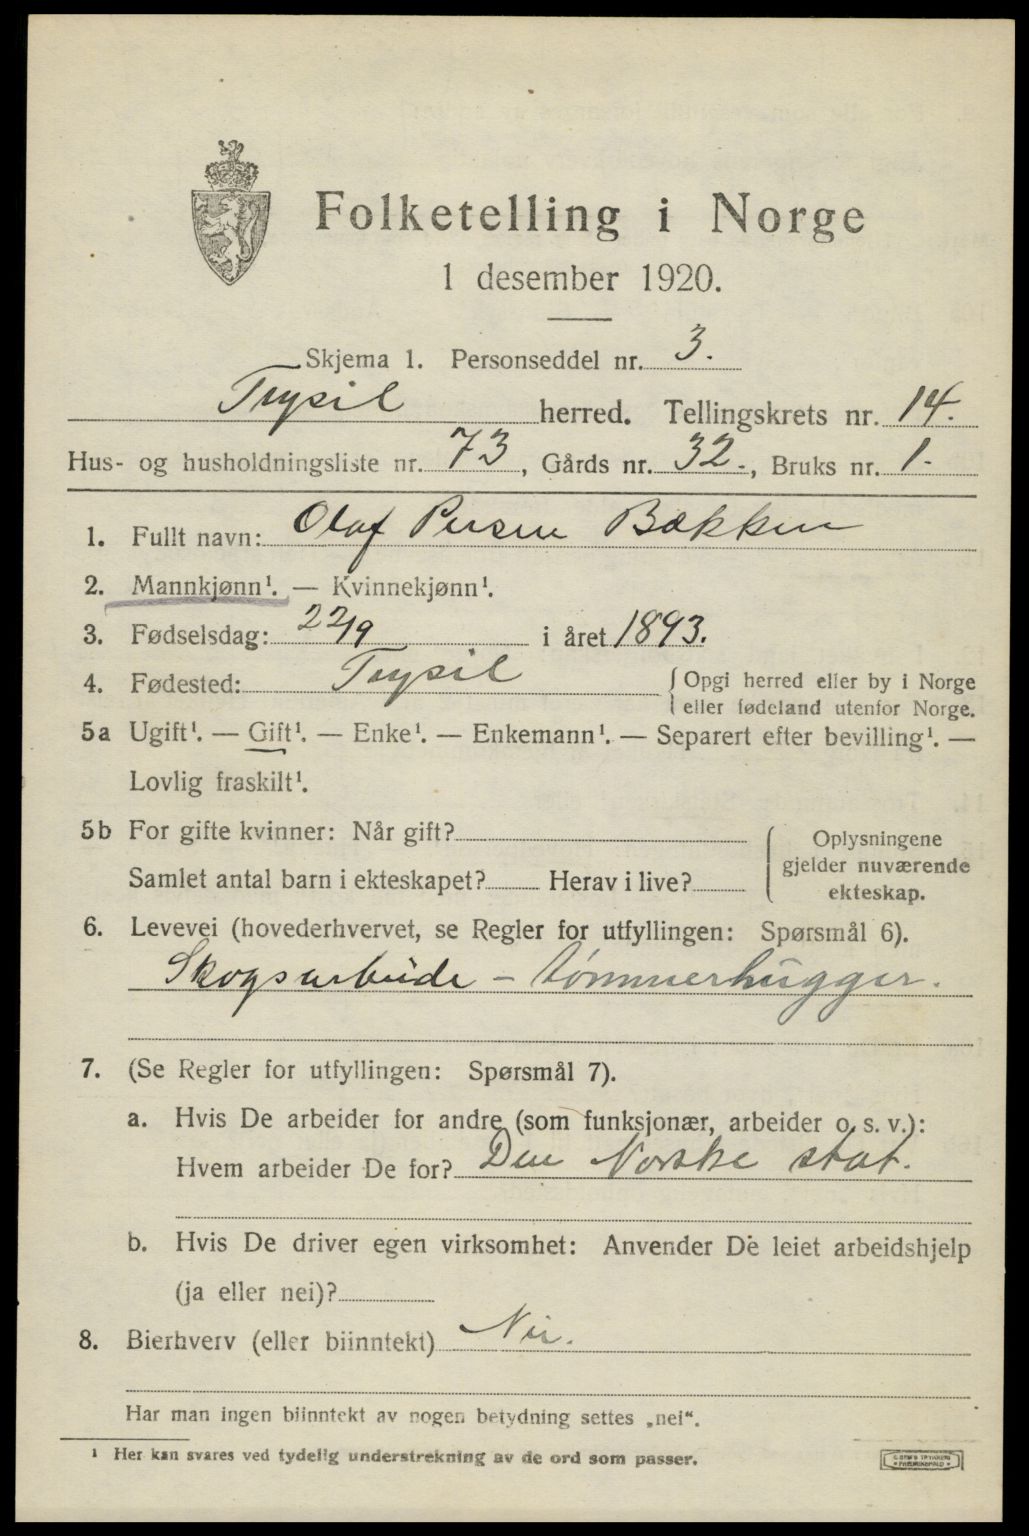 Folketelling i Norge
1 desember 1920.
Skjema 1. Personseddel nr. 3.
Trysil herred. Tellingskrets nr. 14.
Hus- og husholdningsliste nr. 73, Gårds nr. 32., Bruks nr. 1.
1. Fullt navn: Olaf Persen Bækken
2. Mannkjønn¹. — Kvinnekjønn¹.
3. Fødselsdag: 22/9 i året 1893.
4. Fødested: Trysil { Opgi herred eller by i Norge
eller fødeland utenfor Norge.
5a Ugift¹. — Gift¹. — Enke¹. — Enkemann¹. — Separert efter bevilling¹. —
Lovlig fraskilt¹.
5b For gifte kvinner: Når gift?
Samlet antal barn i ekteskapet? Herav i live?
Oplysningene
gjelder nuværende
ekteskap.
6. Levevei (hovederhvervet, se Regler for utfyllingen: Spørsmål 6).
Skogsarbeide - tømmerhugger.
7. (Se Regler for utfyllingen: Spørsmål 7).
a. Hvis De arbeider for andre (som funksjonær, arbeider o. s. v.):
Hvem arbeider De for? Den Norske stat.
b. Hvis De driver egen virksomhet: Anvender De leiet arbeidshjelp
(ja eller nei)?
8. Bierhverv (eller biinntekt) Nei.
Har man ingen biinntekt av nogen betydning settes „nei“.
¹ Her kan svares ved tydelig understrekning av de ord som passer.